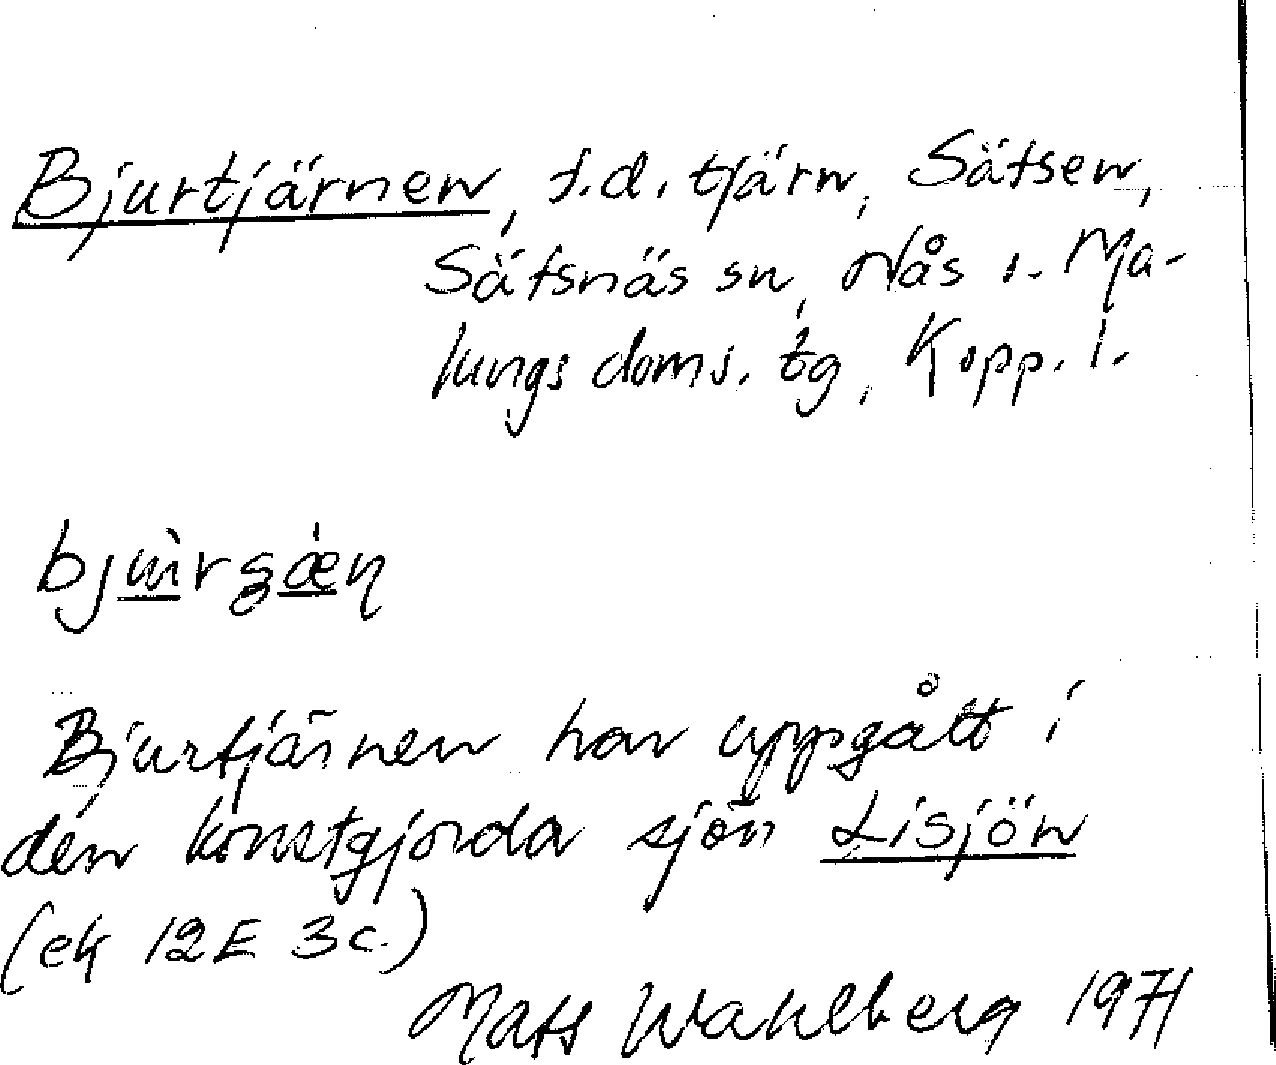 Bjurtjärnen, f.d. tjärn, Sätsen,
Säfsnäs sn, Nås o. Ma-
lungs doms. tg, Kopp. l.
Bjurtjärnen har uppgått i
den konstgjorda sjön Lisjön
(ek 12E 3c.)
Mats Wahlberg 1971